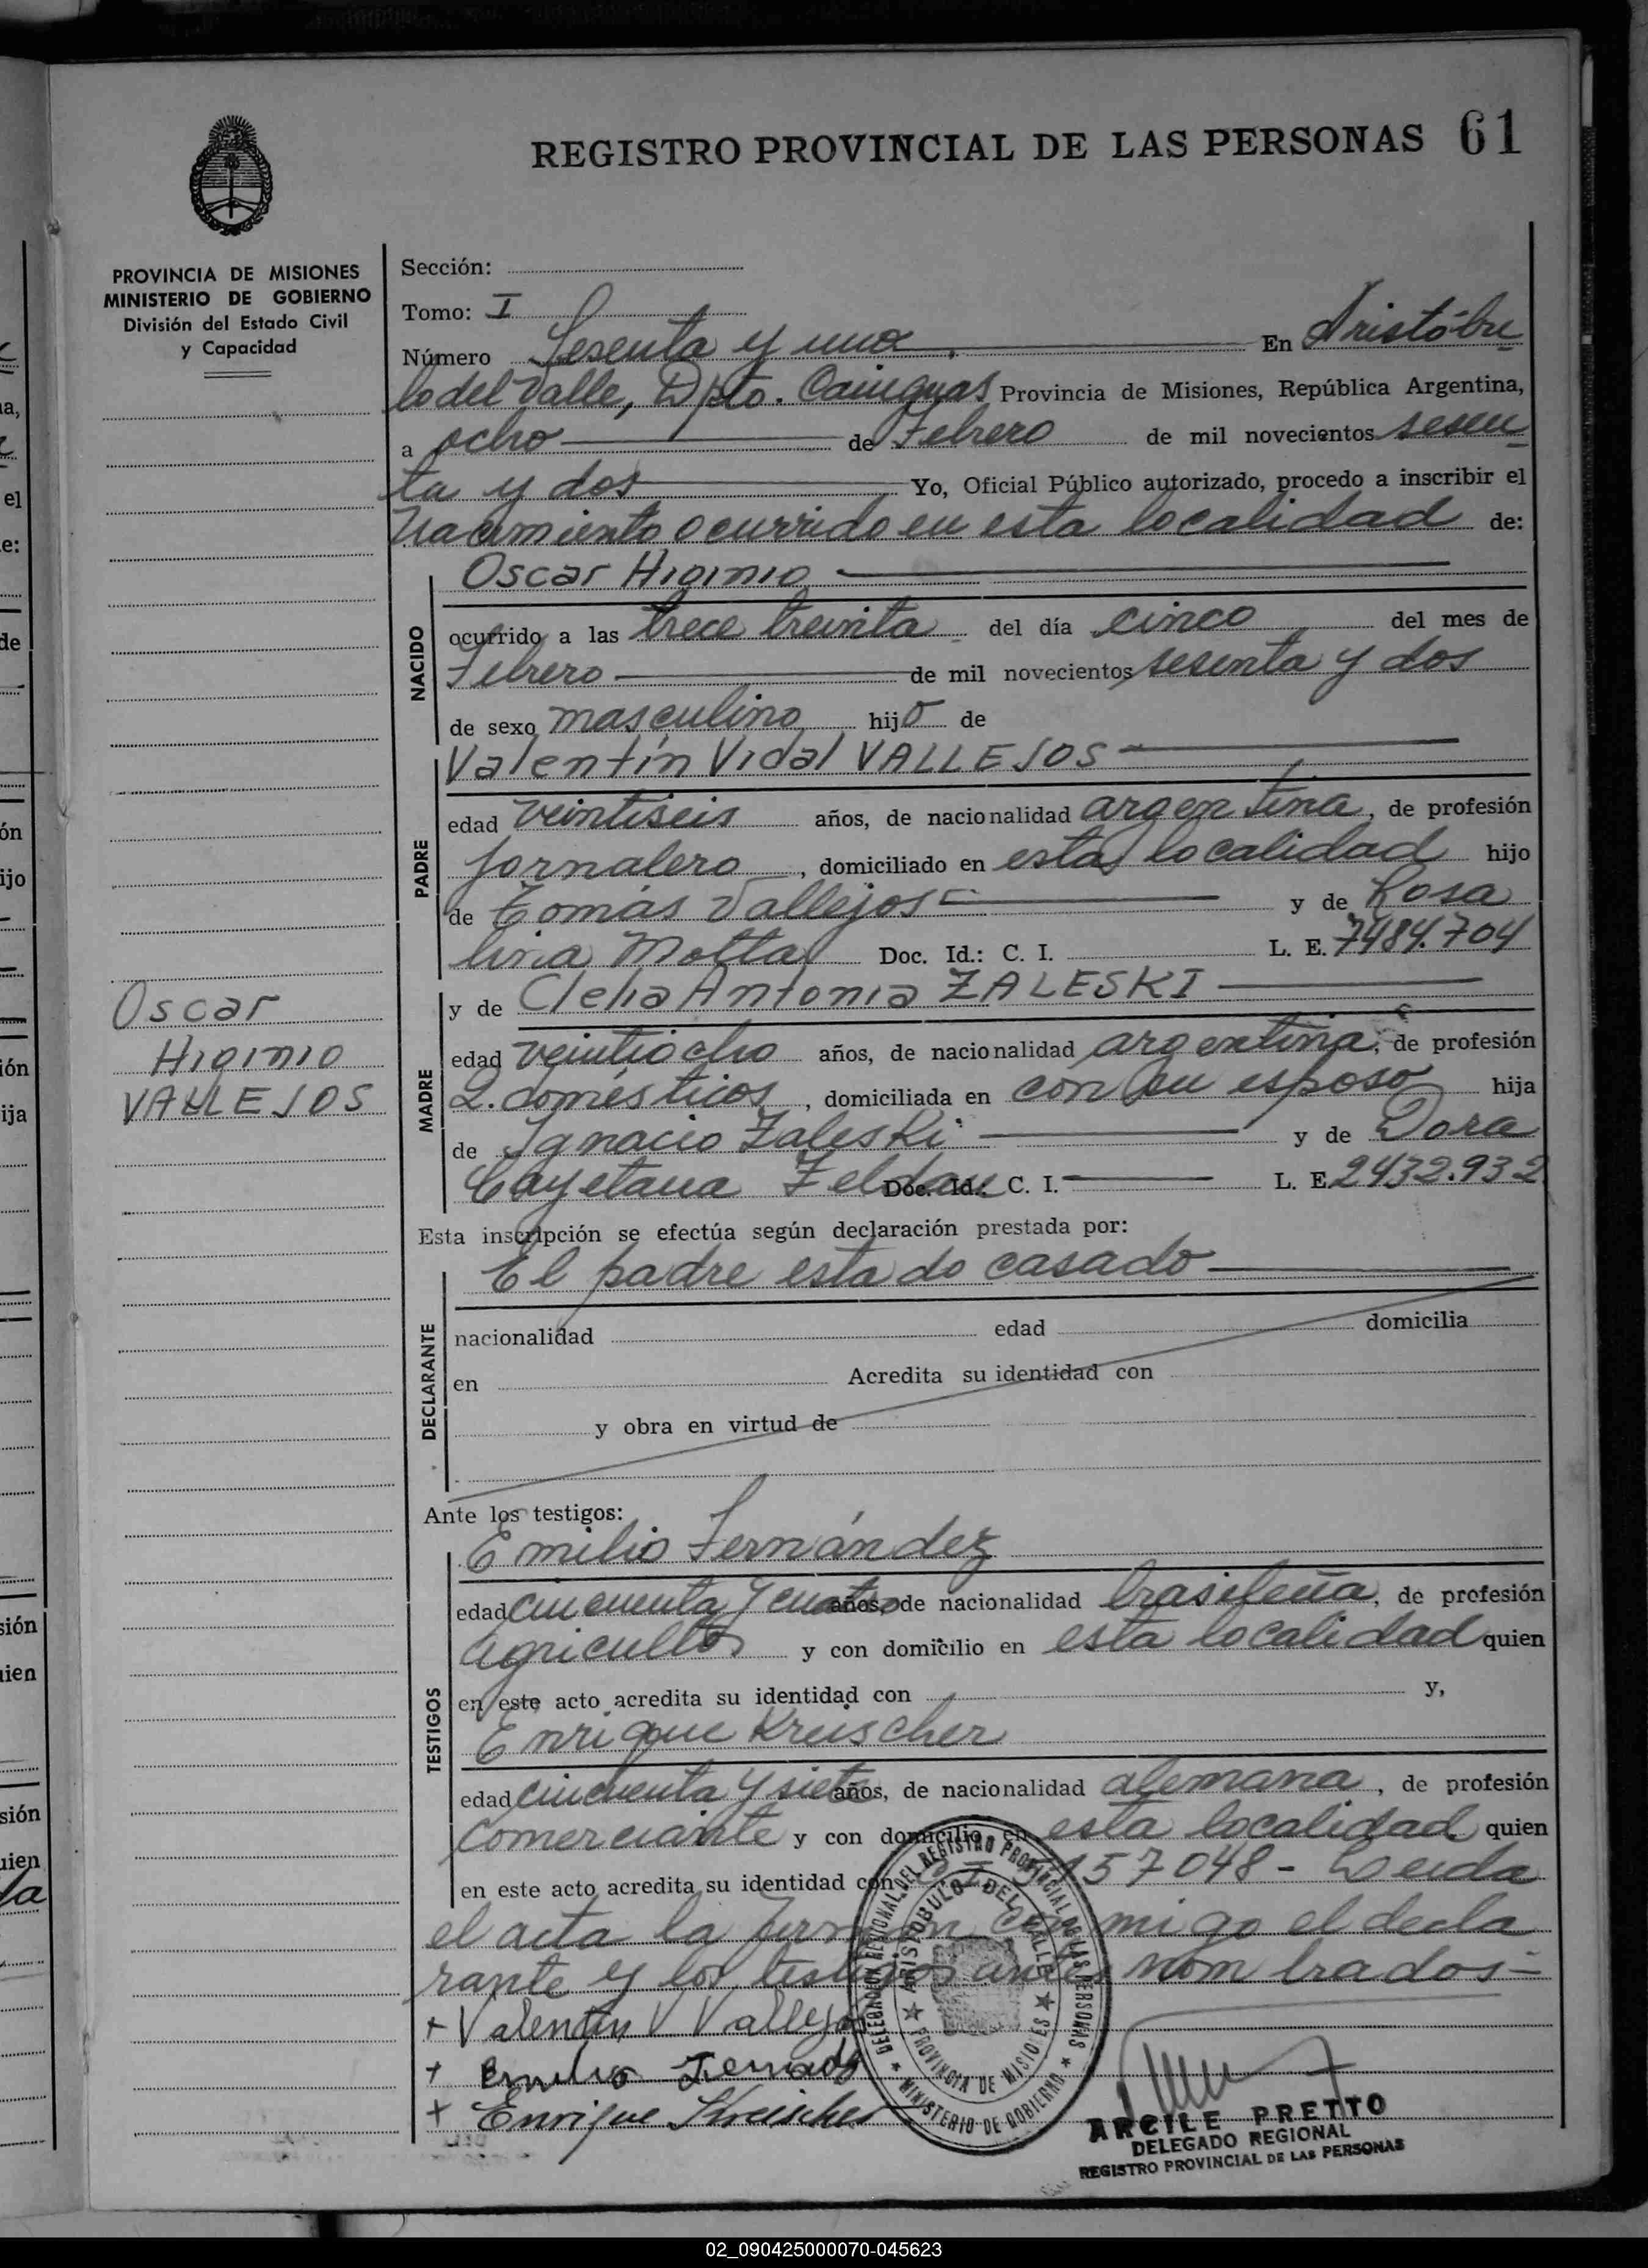 REGISTRO PROVINCIAL DE LAS PERSONAS 61
PROVINCIA DE MISIONES
MINISTERIO DE GOBIERNO
División del Estado Civil
y Capacidad
Sección:
Tomo: I
Número Sesenta y uno. En Aristóbu
lo del Valle, Dpto. Cainguas Provincia de Misiones, República Argentina,
a ocho de Febrero de mil novecientos sesen
ta y dos Yo, Oficial Público autorizado, procedo a inscribir el
Nacimiento ocurrido en esta localidad de:
NACIDO
Oscar Higinio
ocurrido a las trece treinta del día cinco del mes de
Febrero de mil novecientos sesenta y dos
de sexo masculino hijo de
PADRE
Valentín Vidal VALLEJOS
edad veintiseis años, de nacionalidad argentina, de profesión
jornalero, domiciliado en esta localidad hijo
de Tomás Vallejos y de Rosa
lina Motta Doc. Id.: C. I. L. E. 7484.704
MADRE
y de Clelia Antonia ZALESKI
edad veintiocho años, de nacionalidad argentina, de profesión
Q. domésticos, domiciliada en con su esposo hija
de Ignacio Zaleski y de Dora
Cayetana Doc. Id.: C. I. L. E. 2432.932
Oscar
Higinio
VALLEJOS
Esta inscripción se efectúa según declaración prestada por:
DECLARANTE
El padre estado casado
nacionalidad edad domicilia
en Acredita su identidad con
y obra en virtud de
Ante los testigos:
TESTIGOS
Emilio Fernández
edad cincuenta y cuatro años, de nacionalidad brasileña, de profesión
agricultor y con domicilio en esta localidad quien
en este acto acredita su identidad con y,
Enrique Kreischer
edad cincuenta y siete años, de nacionalidad alemana, de profesión
comerciante y con domicilio en esta localidad quien
en este acto acredita su identidad con C. I. 157048 - Leida
el acta la firman conmigo el decla
rante y los testigos antes nombrados =
+ Valentín V Vallejo
+ Emilio
+ Enrique Kreischer
DELEGACION REGIONAL DEL REGISTRO PROVINCIAL DE LAS PERSONAS
MINISTERIO DE GOBIERNO
ARISTOBULO DEL VALLE
PROVINCIA DE MISIONES
ARCILE PRETTO
DELEGADO REGIONAL
REGISTRO PROVINCIAL DE LAS PERSONAS
02_090425000070-045623